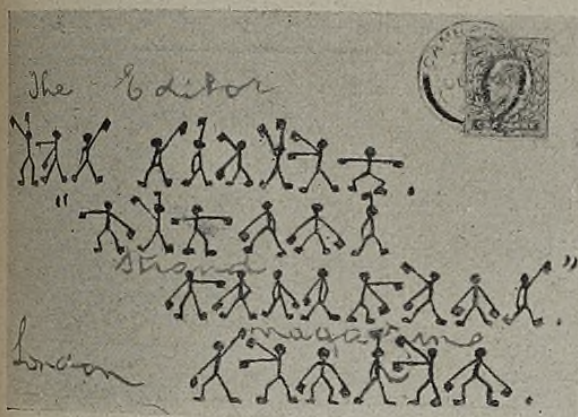 The Editor
"
Strand
Magazine "
London